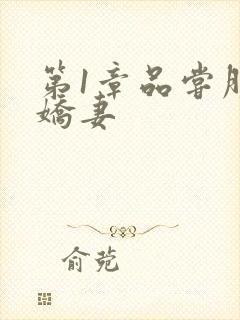 第1章品尝朋
娇妻
俞菀